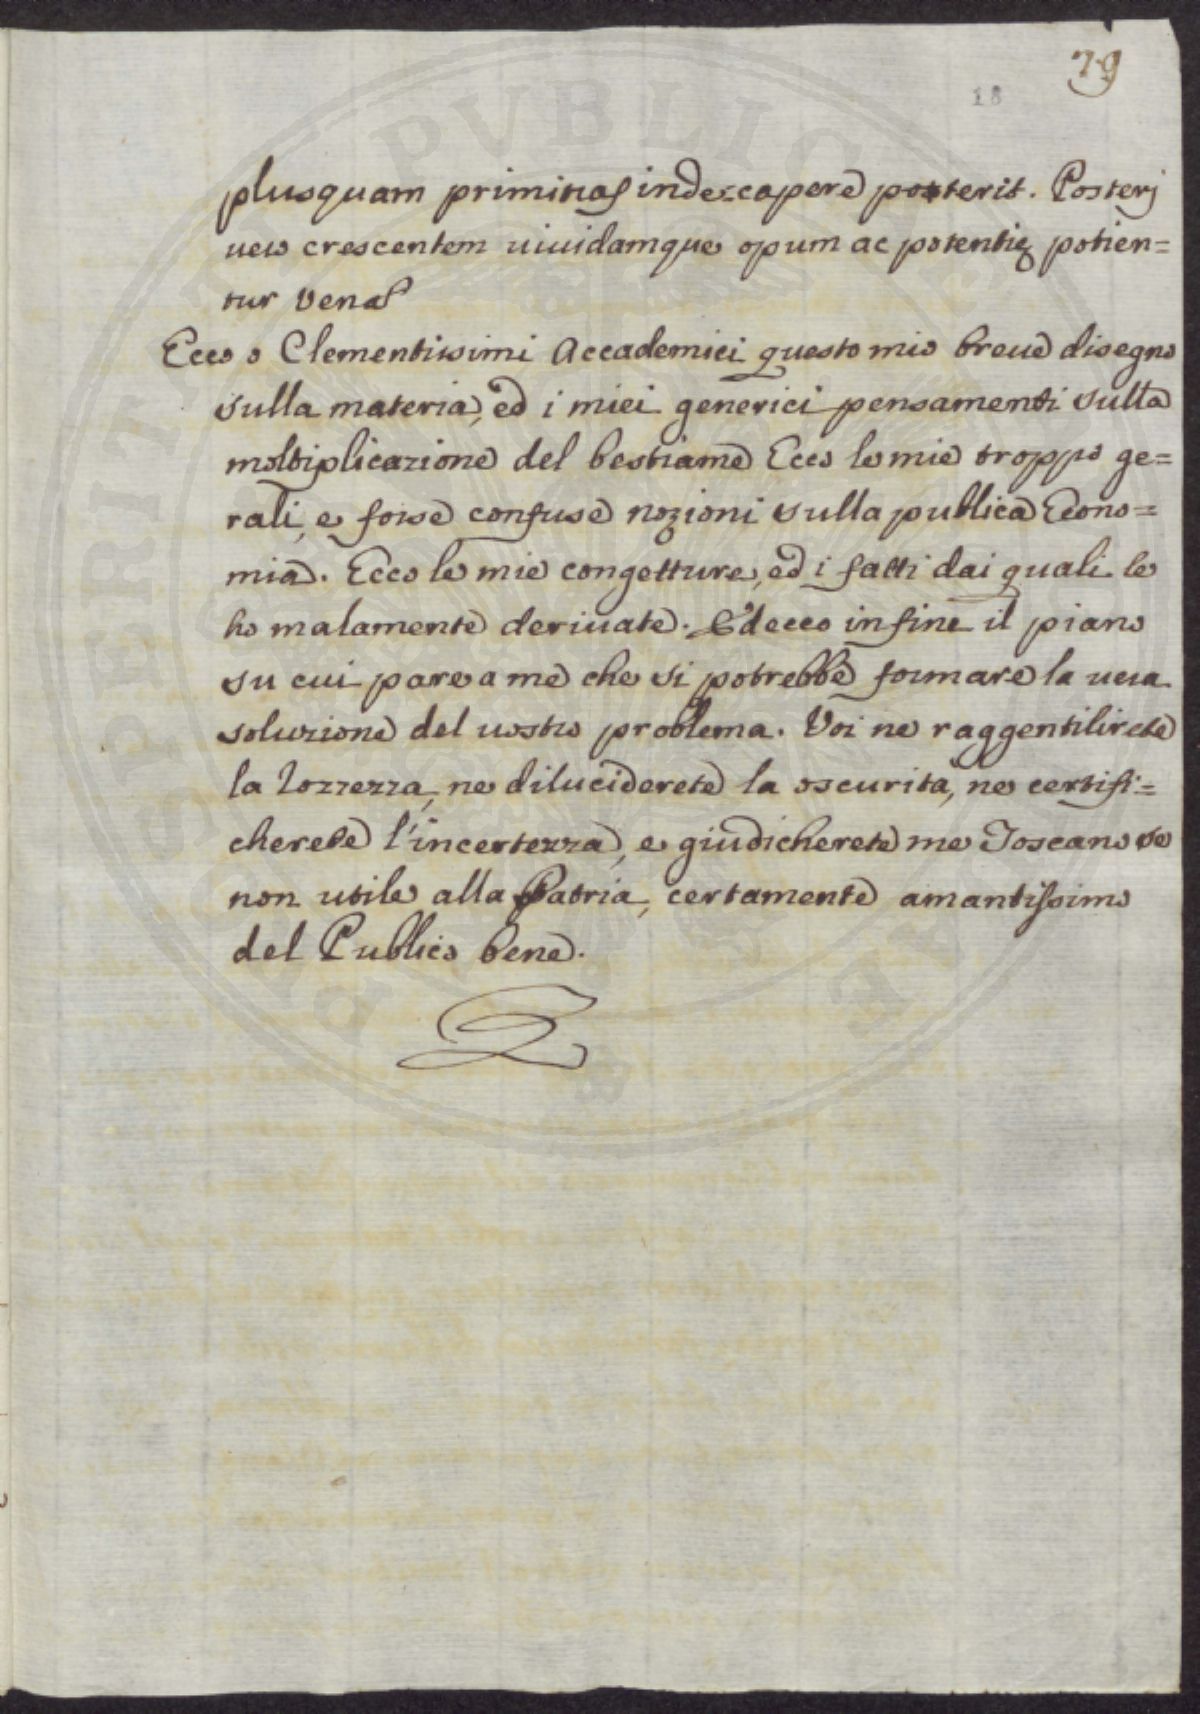 79
18
plusquam primitias inde capere poterit. Posterj
vero crescentem vividamque opum ac potentię potien=
tur venas
Ecco o Clementissimi Accademici questo mio breve disegno
sulla materia, ed i miei generici pensamenti sulla
moltiplicazione del bestiame Ecco le mie troppo ge=
rali, e forse confuse nozioni sulla publica Econo=
mia. Ecco le mie congetture, ed i fatti dai quali le
ho malamente derivate. Ed ecco infine il piano
su cui pare a me che si potrebbe formare la vera
soluzione del vostro problema. Voi ne raggentilirete
la rozzezza, ne diluciderete la oscurità, ne certifi=
cherete l'incertezza, e giudicherete me Toscano se
non utile alla Patria, certamente amantissimo
del Publico bene.